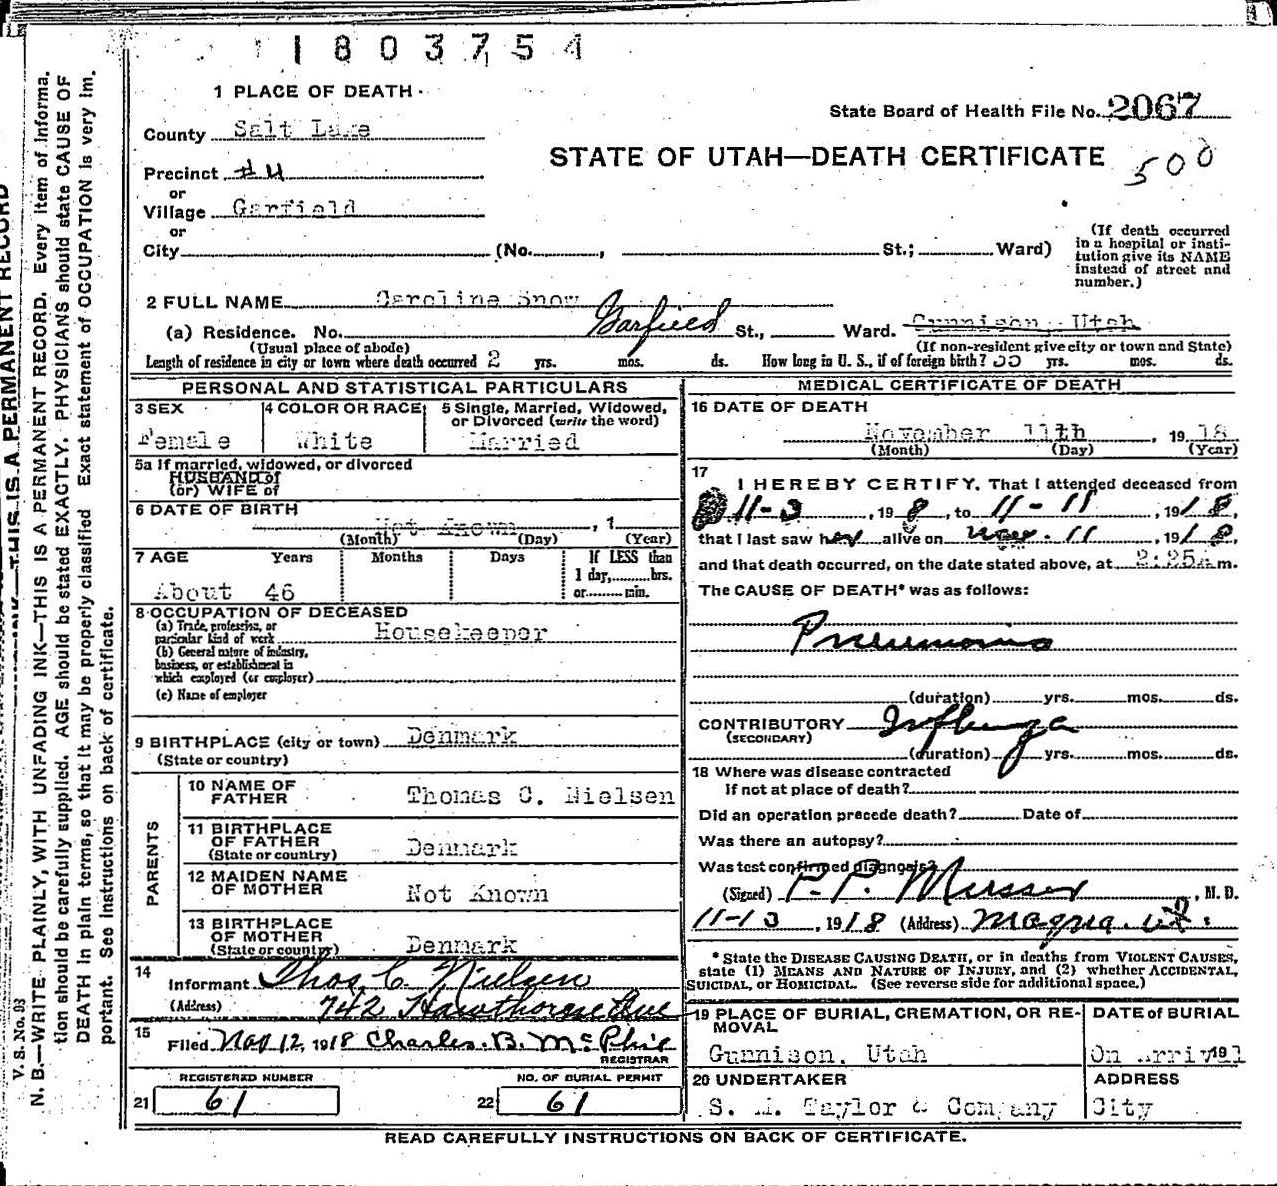 1803754
1 PLACE OF DEATH
State Board of Health File No. 2067
County Salt Lake
STATE OF UTAH—DEATH CERTIFICATE 500
Precinct #4
or
Village Garfield
or
City (No. , St.; Ward)
(If death occurred
in a hospital or insti-
tution give its NAME
instead of street and
number.)
2 FULL NAME Caroline Snow
(a) Residence. No. Garfield St., Ward. Gunnison, Utah
(Usual place of abode) (If non-resident give city or town and State)
Length of residence in city or town where death occurred 2 yrs. mos. ds. How long in U. S., if of foreign birth? yrs. mos. ds.
PERSONAL AND STATISTICAL PARTICULARS
3 SEX
Female
4 COLOR OR RACE
White
5 Single, Married, Widowed,
or Divorced (write the word)
Married
5a If married, widowed, or divorced
HUSBAND of
(or) WIFE of
6 DATE OF BIRTH
Not Known , 1
(Month) (Day) (Year)
7 AGE Years Months Days If LESS than
1 day, hrs.
About 46 or min.
8 OCCUPATION OF DECEASED
(a) Trade, profession, or
particular kind of work Housekeeper
(b) General nature of industry,
business, or establishment in
which employed (or employer)
(c) Name of employer
9 BIRTHPLACE (city or town) Denmark
(State or country)
PARENTS
10 NAME OF
FATHER Thomas C. Nielsen
11 BIRTHPLACE
OF FATHER
(State or country) Denmark
12 MAIDEN NAME
OF MOTHER Not Known
13 BIRTHPLACE
OF MOTHER
(State or country) Denmark
14
Informant Thos. C. Nielsen
(Address) 742 Hawthorne Ave
15
Filed Nov 12, 1918 Charles. B. McPhie
REGISTRAR
REGISTERED NUMBER NO. OF BURIAL PERMIT
21 61 22 61
MEDICAL CERTIFICATE OF DEATH
16 DATE OF DEATH
November 11th , 1918
(Month) (Day) (Year)
17
I HEREBY CERTIFY, That I attended deceased from
11-3 , 19 8, to 11-11 , 1918,
that I last saw her alive on Nov. 11 , 1918,
and that death occurred, on the date stated above, at 2:25a m.
The CAUSE OF DEATH* was as follows:
Pneumonia
(duration) yrs. mos. ds.
CONTRIBUTORY Influenza
(SECONDARY)
(duration) yrs. mos. ds.
18 Where was disease contracted
if not at place of death?
Did an operation precede death? Date of
Was there an autopsy?
Was test confirmed diagnosis?
(Signed) Musser , M. D.
11-13 , 1918 (Address) Magna. Ut.
* State the DISEASE CAUSING DEATH, or in deaths from VIOLENT CAUSES,
state (1) MEANS AND NATURE OF INJURY, and (2) whether ACCIDENTAL,
SUICIDAL, or HOMICIDAL. (See reverse side for additional space.)
19 PLACE OF BURIAL, CREMATION, OR RE-
MOVAL
Gunnison, Utah
DATE of BURIAL
On Arrival 191
20 UNDERTAKER
S. M. Taylor & Company
ADDRESS
City
READ CAREFULLY INSTRUCTIONS ON BACK OF CERTIFICATE.
V. S. No. 93
N. B.—WRITE PLAINLY, WITH UNFADING INK—THIS IS A PERMANENT RECORD. Every item of informa-
tion should be carefully supplied. AGE should be stated EXACTLY. PHYSICIANS should state CAUSE OF
DEATH in plain terms, so that it may be properly classified. Exact statement of OCCUPATION is very im-
portant. See instructions on back of certificate.
THIS IS A PERMANENT RECORD